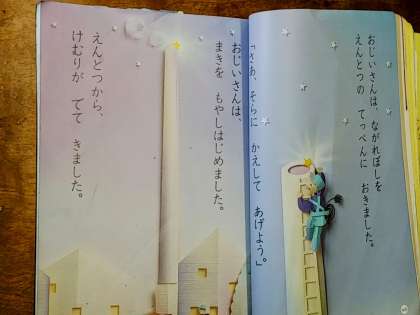 おじいさんは、ながれぼしを
えんとつの てっぺんに おきました。
「さあ、そらに かえして あげよう」。
おじいさんは、
まきを もやしはじめました。
えんとつから、
けむりが でて きました。